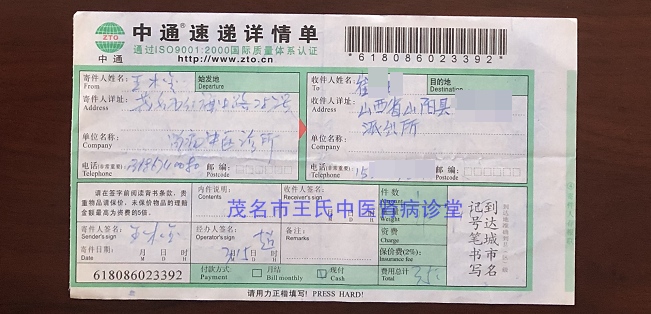 中通®速递详情单
ZTO
通过ISO9001:2000国际质量体系认证
中通 http://www.zto.cn
*618086023392*
寄件人姓名: From
始发地 Departure
收件人姓名: To
目的地 Destination
寄件人详址: Address
收件人详址: Address
山西省山阳县
派出所
单位名称: Company
中医诊所
单位名称: Company
电话(非常重要) Telephone
邮编:
电话(非常重要) Telephone
15
邮编:
请在签字前阅读背书条款,贵重物品请保价,未保价物品的理赔金额最高为资费的5倍。
内件说明: Contents
收件人签名: Receiver's sign
件数
茂名市王氏中医肾病诊堂
寄件人签名: Sender's sign
经办人签名: Operator's sign
备注: Remarks
资费 Charge
保价费(2%): Insurance fee
寄件日期: Date
年Y 月M 日D 时H
618086023392
付款方式: Payment
月结 Bill monthly
现付 Cash
费用总计 Total
到达城市名
记号笔书写
请用力正楷填写! PRESS HARD!